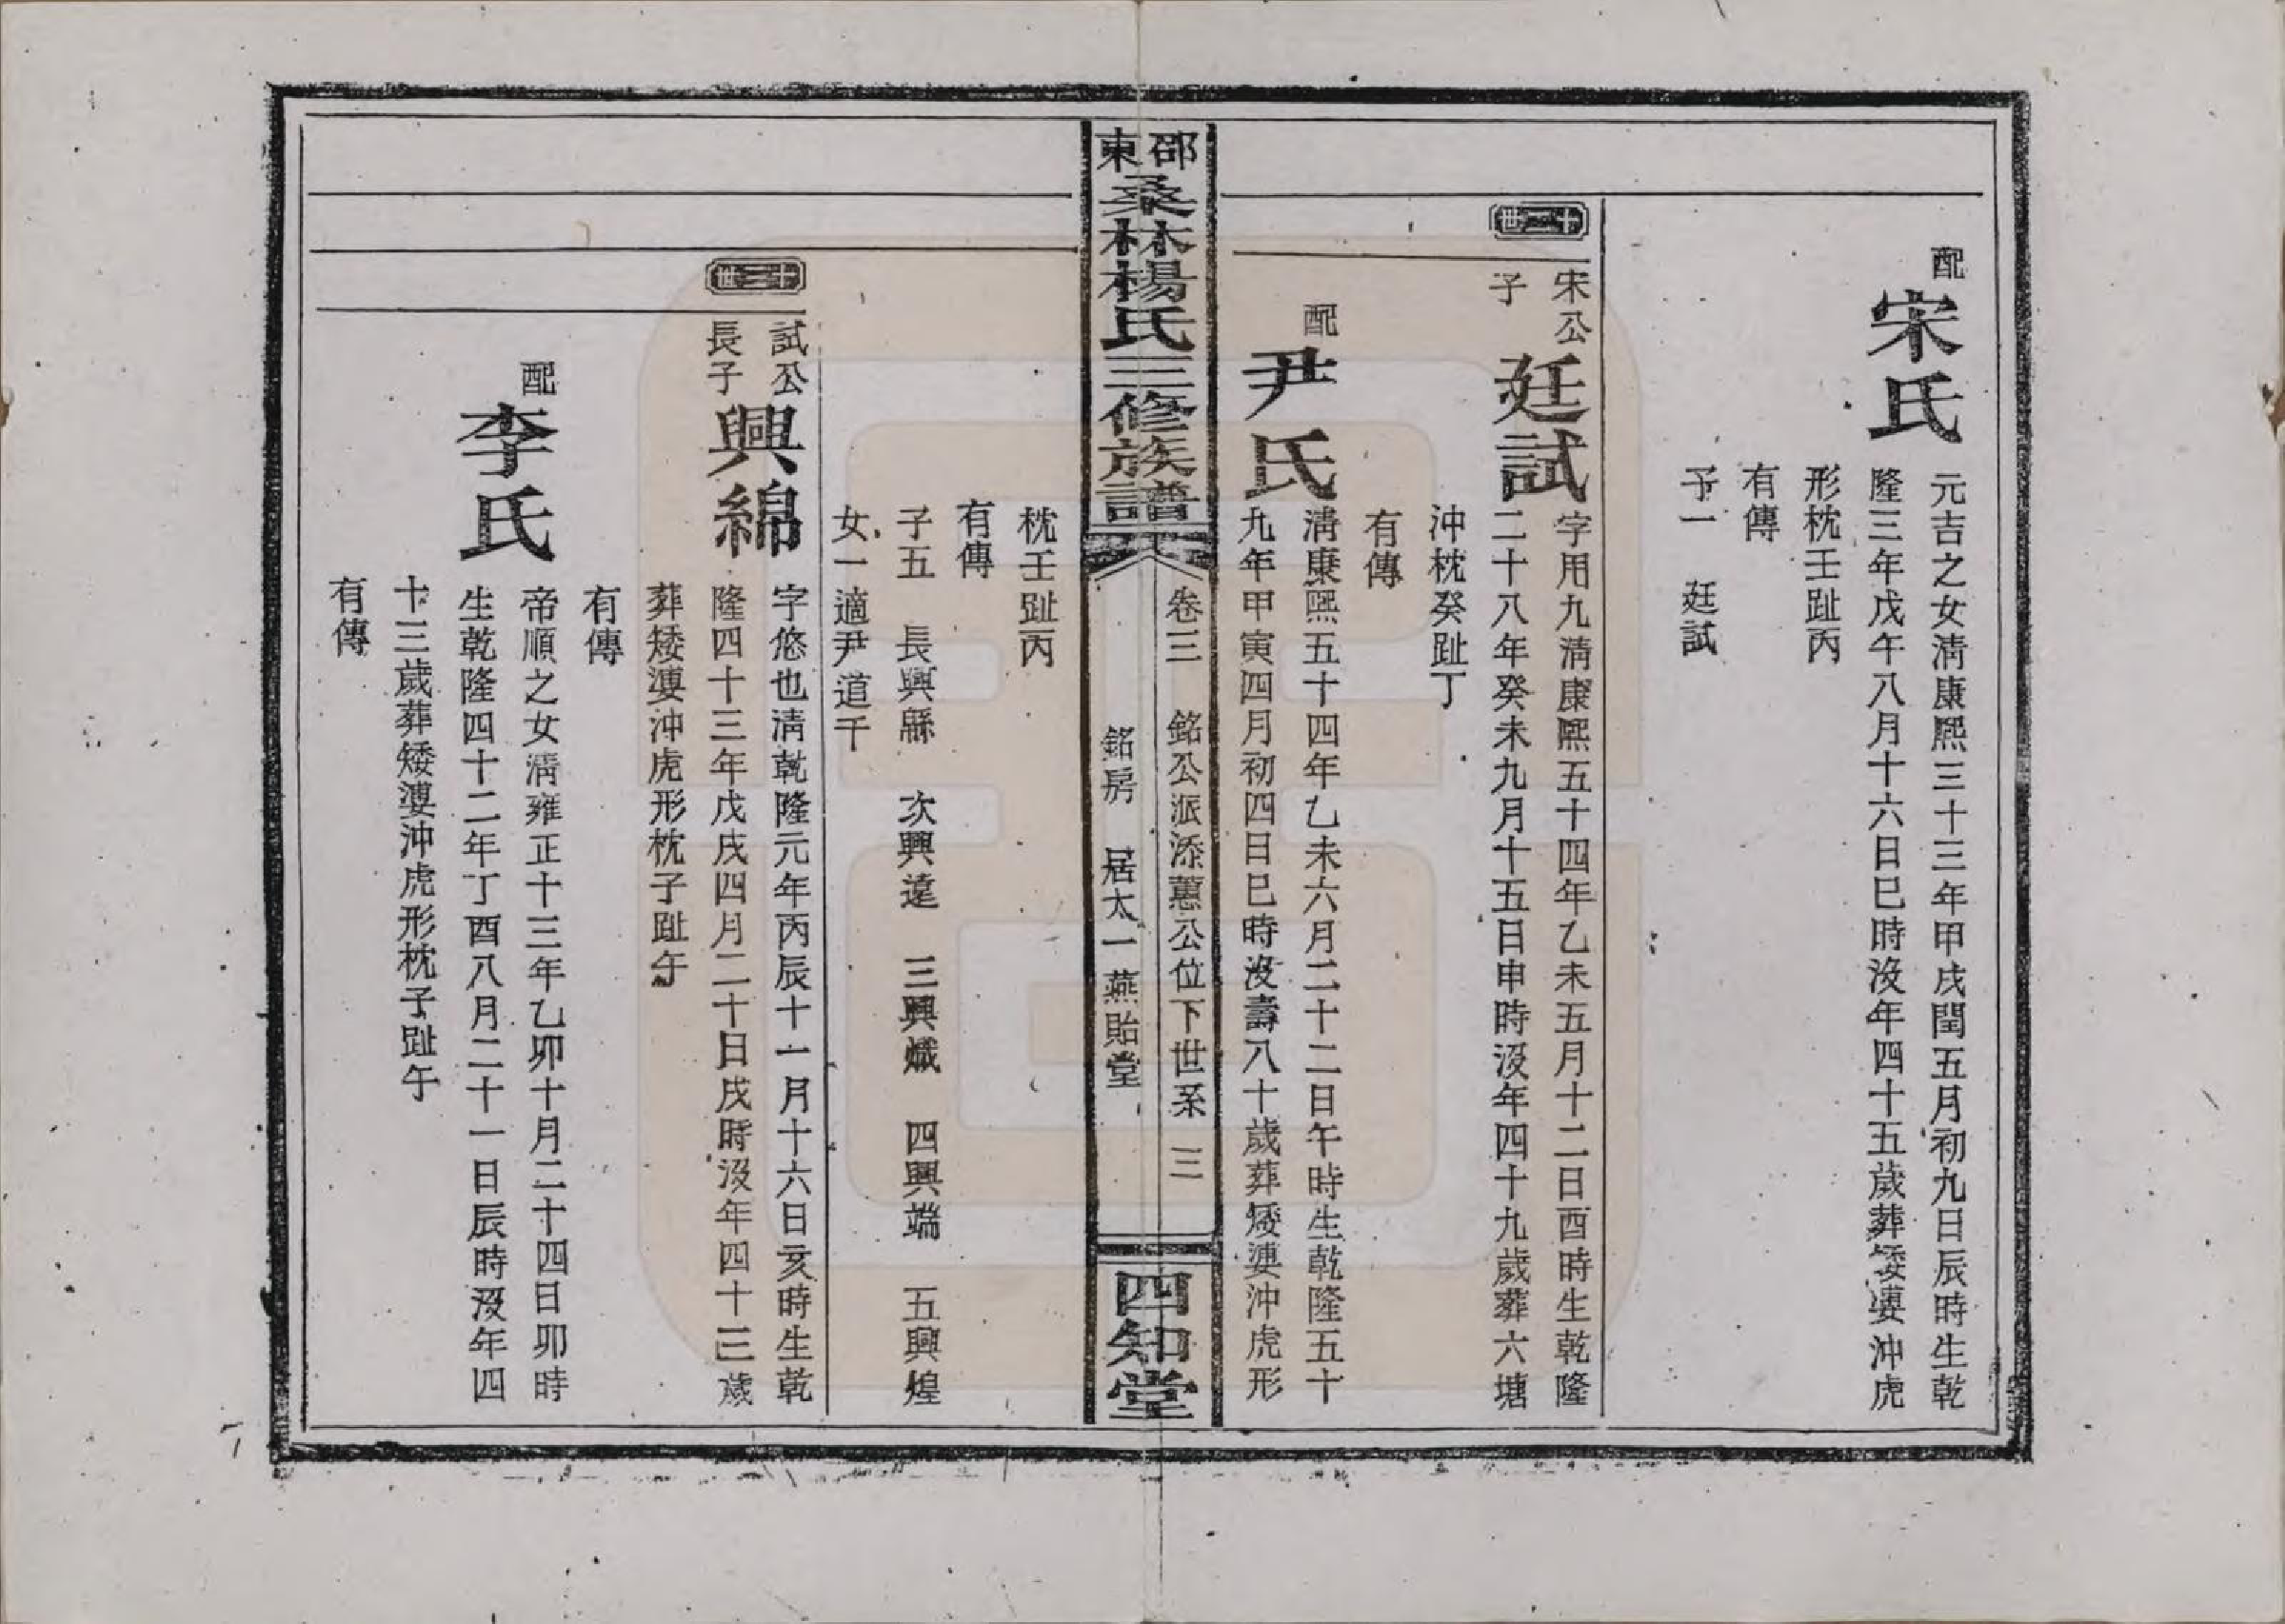 配
宋氏
元吉之女淸康熙三十三年甲戌閏五月初九日辰時生乾
隆三年戊午八月十六日巳時沒年四十五歲葬矮婆冲虎
形枕壬趾丙
有傳
子一　廷試
十二世
宋公
子
廷試
字用九淸康熙五十四年乙未五月十二日酉時生乾隆
二十八年癸未九月十五日申時沒年四十九歲葬六塘
沖枕癸趾丁
有傳
配
尹氏
淸康熙五十四年乙未六月二十二日午時生乾隆五十
九年甲寅四月初四日巳時沒壽八十歲葬矮婆沖虎形
邵東桑林楊氏三修族譜
卷三　銘公派添蕙公位下世系　三
銘房　居太一燕貽堂
四知堂
枕壬趾丙
有傳
子五　長興縣　次興遠　三興熾　四興端　五興煌
女一適尹道千
十三世
試公
長子
興綿
字悠也淸乾隆元年丙辰十一月十六日亥時生乾
隆四十三年戊戌四月二十日戌時沒年四十三歲
葬矮婆沖虎形枕子趾午
有傳
配
李氏
帝順之女淸雍正十三年乙卯十月二十四日卯時
生乾隆四十二年丁酉八月二十一日辰時沒年四
十三歲葬矮婆沖虎形枕子趾午
有傳